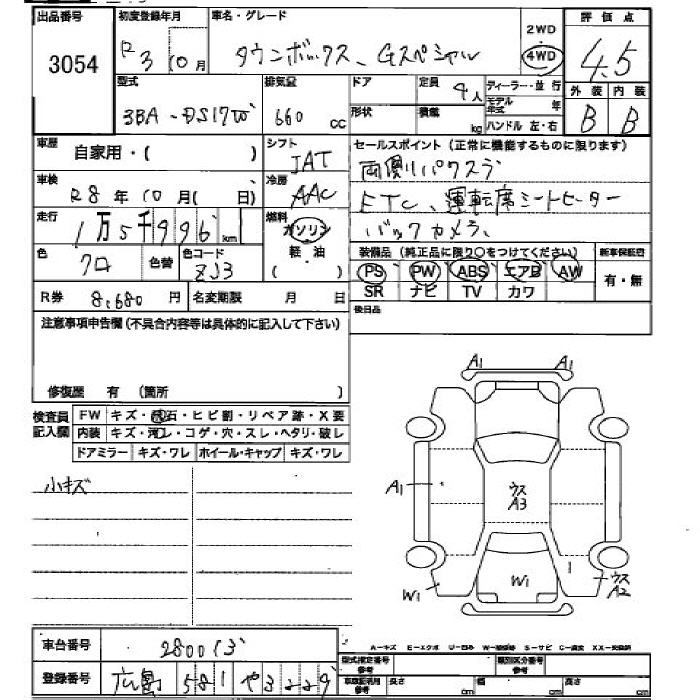 出品番号 初度登録年月 車名・グレード 2WD 評価点
3054 R3 10月 タウンボックス、Gスペシャル 4WD 4.5
型式 排気量 ドア 定員 ディーラー・並行 外装 内装
3BA-DS17W 660cc 形状 積載 kg 4人 モデル年式 年 ハンドル 左・右 B B
車歴 自家用・( ) シフト JAT セールスポイント (正常に機能するものに限ります)
両側リパワスラ
車検 R8年10月( 日) 冷房 AAC ETC、運転席シートヒーター
走行 1万5千996km 燃料 ガソリン 軽油 ( ) バックカメラ、
色 クロ 色替 色コード ZJ3 装備品 (純正品に限り○をつけてください) 新車保証書
PS PW ABS エアB AW 有・無
R券 8,680円 名変期限 月 日 SR ナビ TV カワ
注意事項申告欄(不具合内容等は具体的に記入して下さい) 後日品
修復歴 有 (箇所 )
検査員記入欄 FW キズ・飛石・ヒビ割・リペア跡・X要
内装 キズ・汚レ・コゲ・穴・スレ・ヘタリ・破レ
ドアミラー キズ・ワレ ホイール・キャップ キズ・ワレ
小キズ
A1 A1
A1 ウス A3
W1 W1 1 ウス A2
車台番号 280013
A-キズ E-エクボ U-凹み W-補修跡 S-サビ C-腐食 XX-交換済
登録番号 広島 581 や 3229
型式指定番号 参考 類別区分番号 参考
車庫証明用 参考 長さ cm 幅 cm 高さ cm